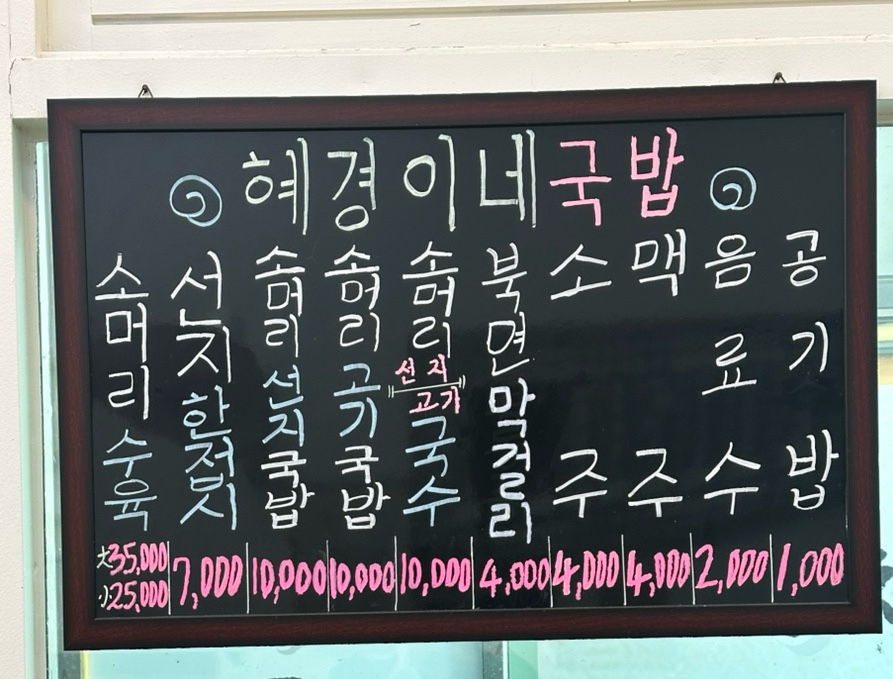 혜경이네국밥
소머리수육
大35,000
小25,000
선지한접시
7,000
소머리선지국밥
10,000
소머리고기국밥
10,000
소머리
선지
고기
국수
10,000
북면막걸리
4,000
소주
4,000
맥주
4,000
음료수
2,000
공기밥
1,000